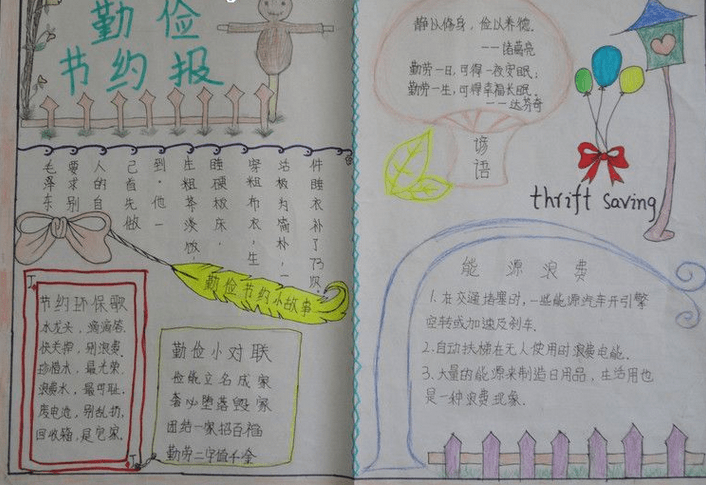 勤俭
节约报
毛泽东
要求别
人的自
己首先做
到，他一
庄粗茶淡饭，
睡硬板床，
穿粗布衣，生
活极为简朴，一
件睡衣补了73次，
勤俭节约小故事
节约环保歌
水龙头，滴滴答，
快关掉，别浪费。
珍惜水，最光荣，
浪费水，最可耻。
废电池，别乱扔，
回收箱，是它家。
勤俭小对联
俭能立名成家
奢必堕落毁家
团结一家招百福
勤劳二字值千金
静以修身，俭以养德．
——诸葛亮
勤劳一日，可得一夜安眠；
勤劳一生，可得幸福长眠．
——达芬奇
谚语
thrift saving
能源浪费
1.在交通堵塞时，一些能源汽车开引擎
空转或加速及刹车．
2.自动扶梯在无人使用时浪费电能．
3.大量的能源来制造日用品，生活用也
是一种浪费现象．